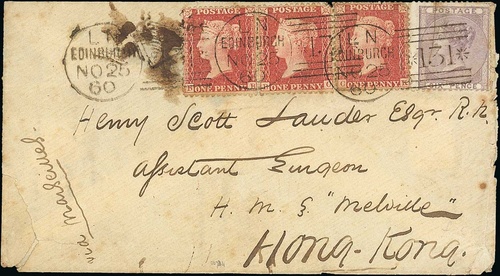 POSTAGE POSTAGE POSTAGE POSTAGE
L N
EDINBURGH
NO 25
60
L N
EDINBURGH
NO 25
L N
EDINBURGH
NO 25
60
131
ONE PENNY ONE PENNY ONE PENNY
Henry Scott Lauder Esqr. R.N.
Assistant Surgeon
H. M. S "Melville"
Hong-Kong.
"via Marseilles."